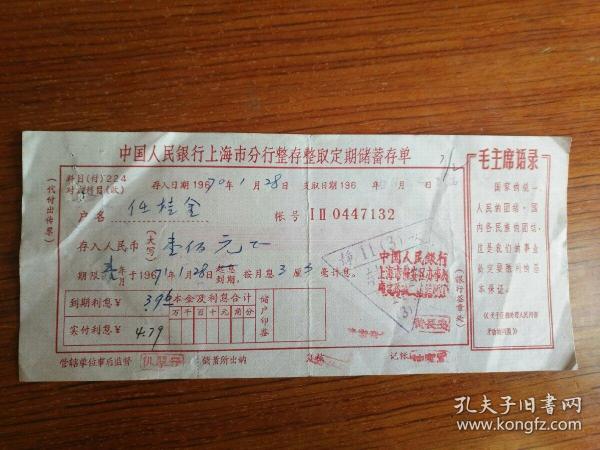 中国人民银行上海市分行整存整取定期储蓄存单
科目(付)224
对方科目(收)
存入日期1970年1月28日 支取日期196 年 月 日
户名 任桂金
帐号 I II 0447132
存入人民币(大写) 壹佰元正
期限 壹年 于1971年1月28日 起息 到期,按月息3厘3毫计息。
到期利息¥ 3.96
本金及利息合计
万千百十元角分
实付利息¥ 4.29
储户印鉴
管辖单位事后监督
储蓄所出纳
复核
记帐
(代付出传票)
(银行签章处)
中国人民银行
上海市静安区办事处
毛主席语录
国家的统一,
人民的团结,国
内各民族的团结,
这是我们的事业
必定要胜利的基
本保证。
《关于正确处理人民内部
矛盾的问题》
孔夫子旧书网